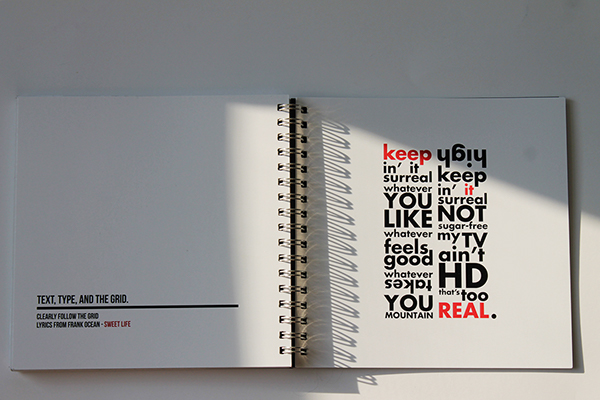 TEXT, TYPE, AND THE GRID.
CLEARLY FOLLOW THE GRID
LYRICS FROM FRANK OCEAN - SWEET LIFE
keep
in' it
surreal
whatever
YOU
LIKE
whatever
feels
good
whatever
takes
YOU
MOUNTAIN
high
keep
in' it
surreal
NOT
sugar-free
my TV
ain't
HD
that's too
REAL.